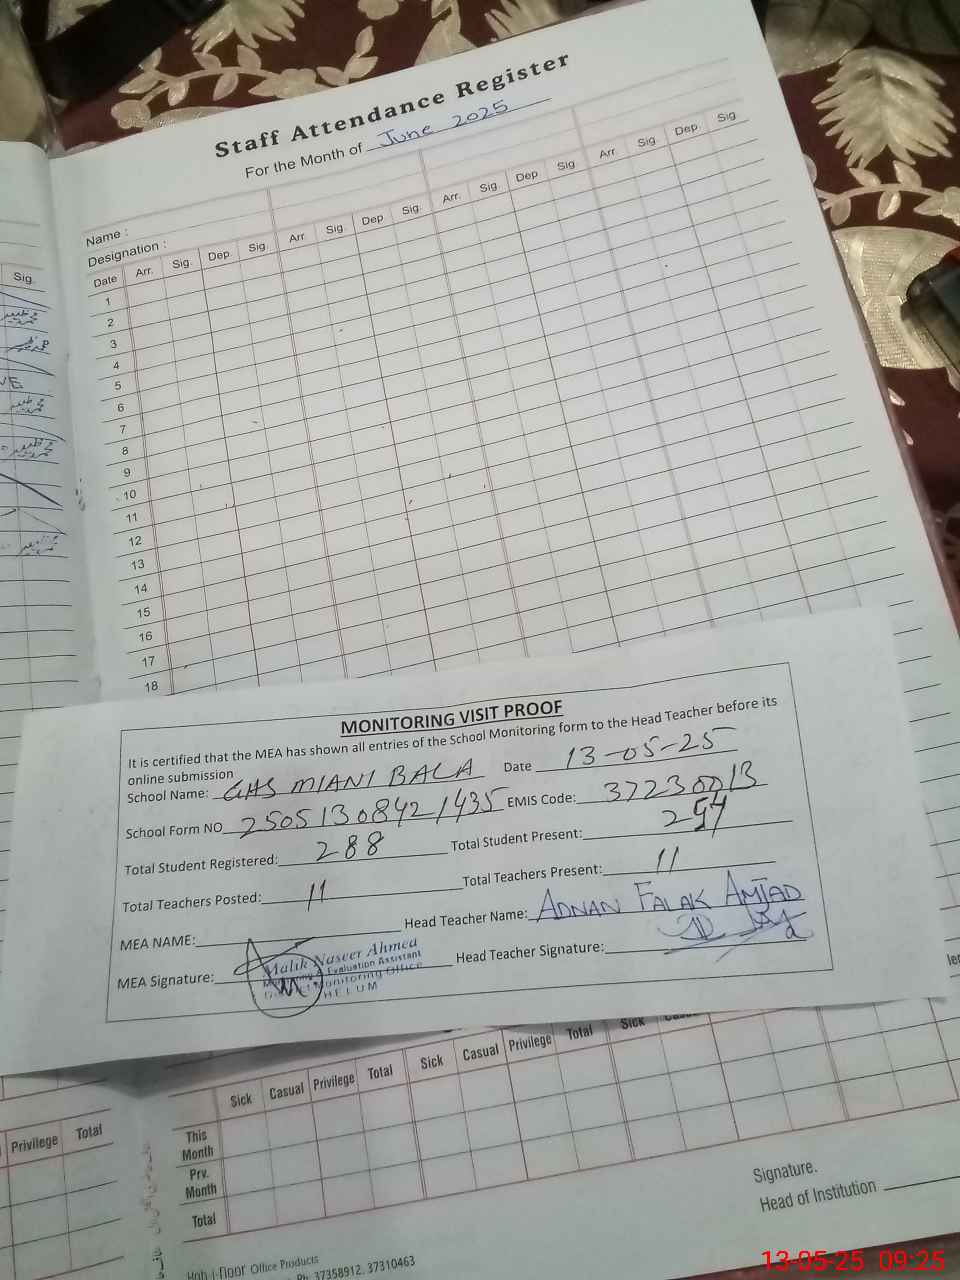 Staff Attendance Register
For the Month of June 2025
Name :
Designation :
Date Arr. Sig. Dep Sig. Arr. Sig. Dep Sig. Arr. Sig. Dep Sig. Arr. Sig. Dep. Sig
1
2
3
4
5
6
7
8
9
10
11
12
13
14
15
16
17
18
Sig.
MONITORING VISIT PROOF
It is certified that the MEA has shown all entries of the School Monitoring form to the Head Teacher before its
online submission
School Name: GHS MIANI BALA Date 13-05-25
School Form NO 25051308421435 EMIS Code: 37230013
Total Student Registered: 288 Total Student Present: 254
Total Teachers Posted: 11 Total Teachers Present: 11
MEA NAME: Head Teacher Name: ADNAN FALAK AMJAD
MEA Signature: Head Teacher Signature:
Malik Naseer Ahmed
Monitoring & Evaluation Assistant
District Monitoring Office
JHELUM
Sick Casual Privilege Total Sick Casual Privilege Total Sick Casual
This
Month
Prv.
Month
Total
Privilege Total
Signature.
Head of Institution
Office Products
Ph: 37358912, 37310463
13-05-25 09:25